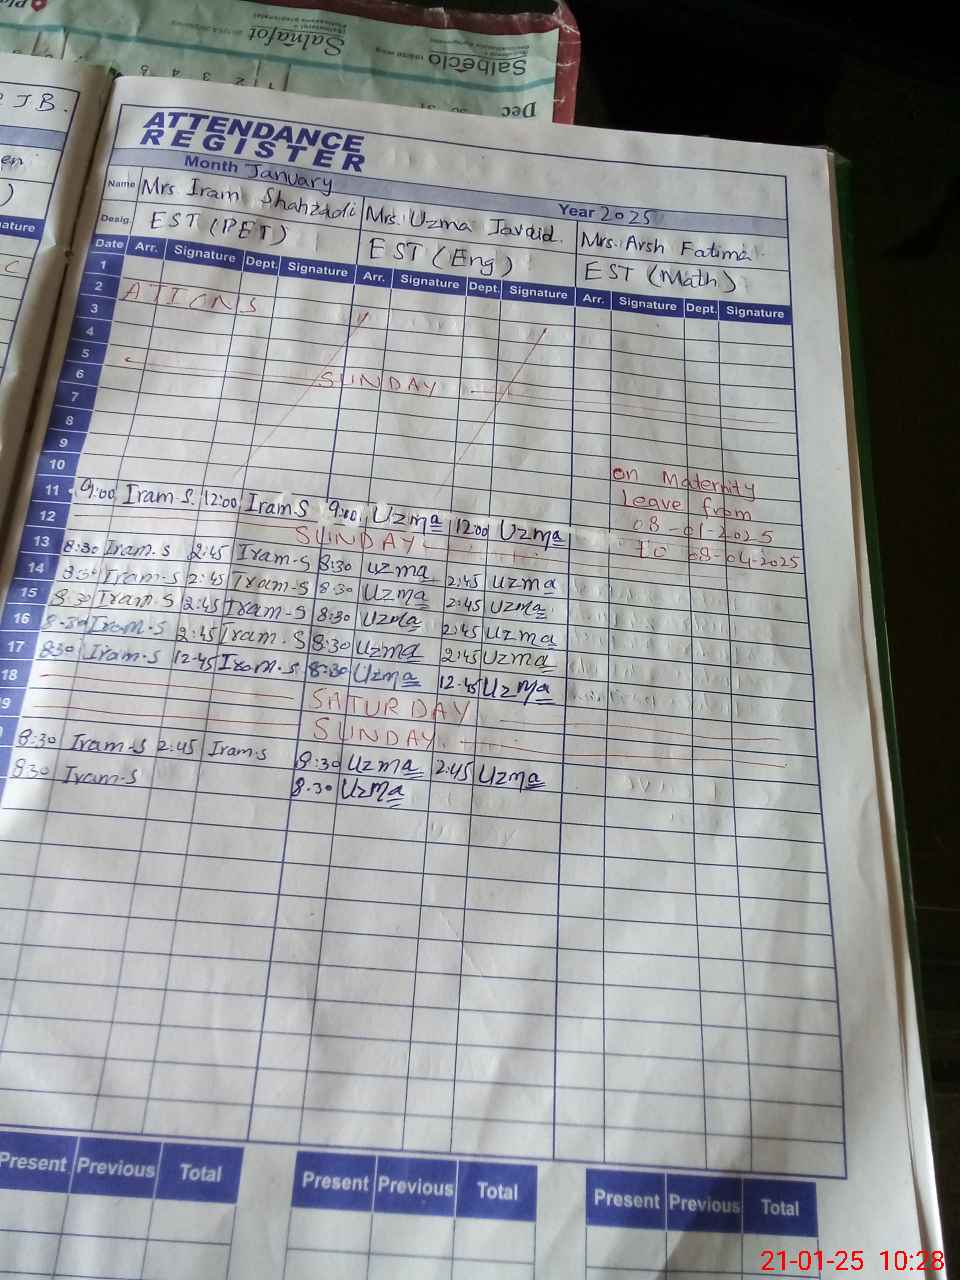 Salnafot
Salbeclo
1 2 3 4 5
Dec 31
J B.
ATTENDANCE
REGISTER
Month January
Year 2025
Name Mrs Iram Shahzadi Mrs. Uzma Javaid. Mrs. Arsh Fatima.
Desig. EST (PET) EST (Eng) EST (Math)
Date Arr. Signature Dept. Signature Arr. Signature Dept. Signature Arr. Signature Dept. Signature
1
2
3
4
5 SUNDAY
6
7
8
9
10
on Maternity
Leave from
08-01-2025
To 08-04-2025
11 9:00 Iram S. 12:00 Iram S 9:00 Uzma 12:00 Uzma
12 SUNDAY
13 8:30 Iram.S 2:45 Iram-S 8:30 Uzma 2:45 Uzma
14 8:30 Iram-S 2:45 Iram-S 8:30 Uzma 2:45 Uzma
15 8:30 Iram-S 2:45 Iram-S 8:30 Uzma 2:45 Uzma
16 8:30 Iram.S 2:45 Iram.S 8:30 Uzma 2:45 Uzma
17 8:30 Iram-S 12-45 Iram.S 8:30 Uzma 12-45 Uzma
18 SATURDAY
9 SUNDAY
8:30 Iram-S 2:45 Iram-S 8:30 Uzma 2:45 Uzma
8:30 Iram-S 8.30 Uzma
Present Previous Total Present Previous Total Present Previous Total
21-01-25 10:28